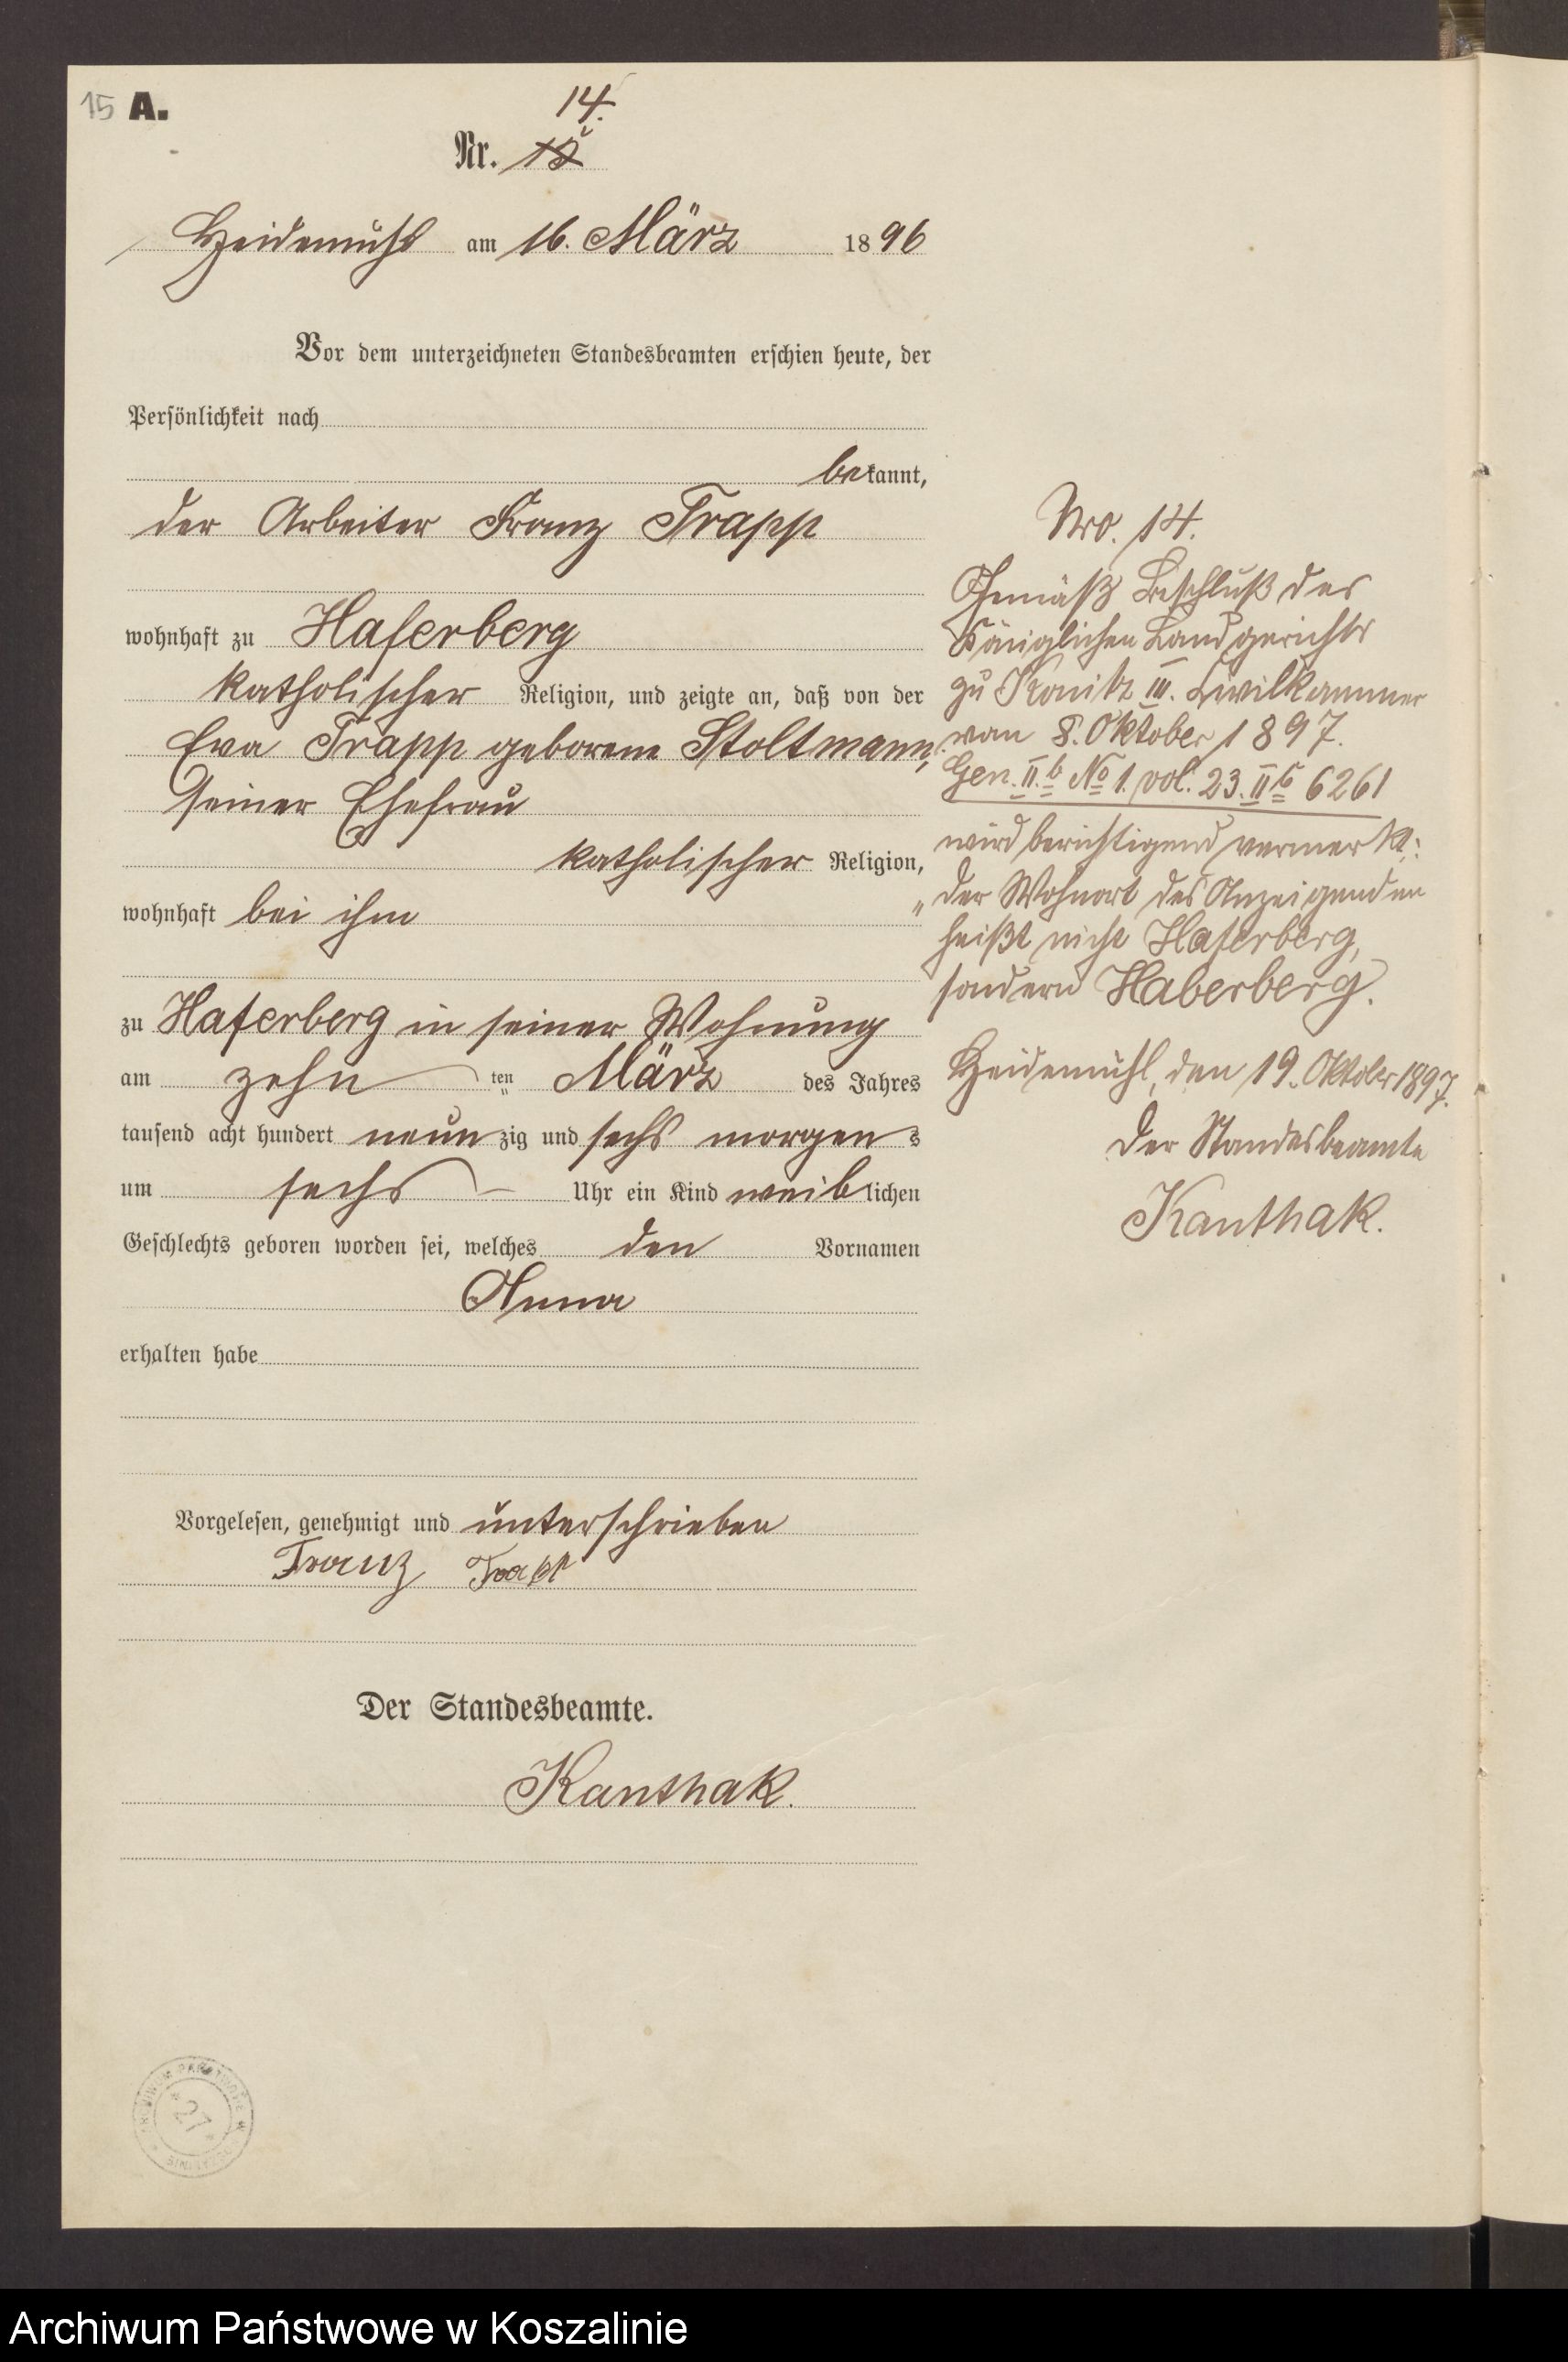 15 A.
14.
Nr. 15
Heidemühl am 16. März 1896
Vor dem unterzeichneten Standesbeamten erschien heute, der
Persönlichkeit nach
bekannt,
der Arbeiter Franz Trapp
wohnhaft zu Haferberg
katholischer Religion, und zeigte an, daß von der
Eva Trapp geborene Stoltmann,
seiner Ehefrau
katholischer Religion,
wohnhaft bei ihm
zu Haferberg in seiner Wohnung
am zehn ten März des Jahres
tausend acht hundert neunzig und sechs morgens
um sechs Uhr ein Kind weiblichen
Geschlechts geboren worden sei, welches den Vornamen
Anna
erhalten habe
Vorgelesen, genehmigt und unterschrieben
Franz
Der Standesbeamte.
Kanthak.
Nro. 14.
Gemäß Beschluß des
Königlichen Landgerichts
zu Konitz III. Civilkammer
vom 8. Oktober 1897.
Gen. II.b No 1. vol. 23. II 6261
wird berichtigend vermerkt:
"der Wohnort des Anzeigenden
heißt nicht Haferberg,
sondern Haberberg.
Heidemühl, den 19. Oktober 1897.
Der Standesbeamte
Kanthak.
27
Archiwum Państwowe w Koszalinie